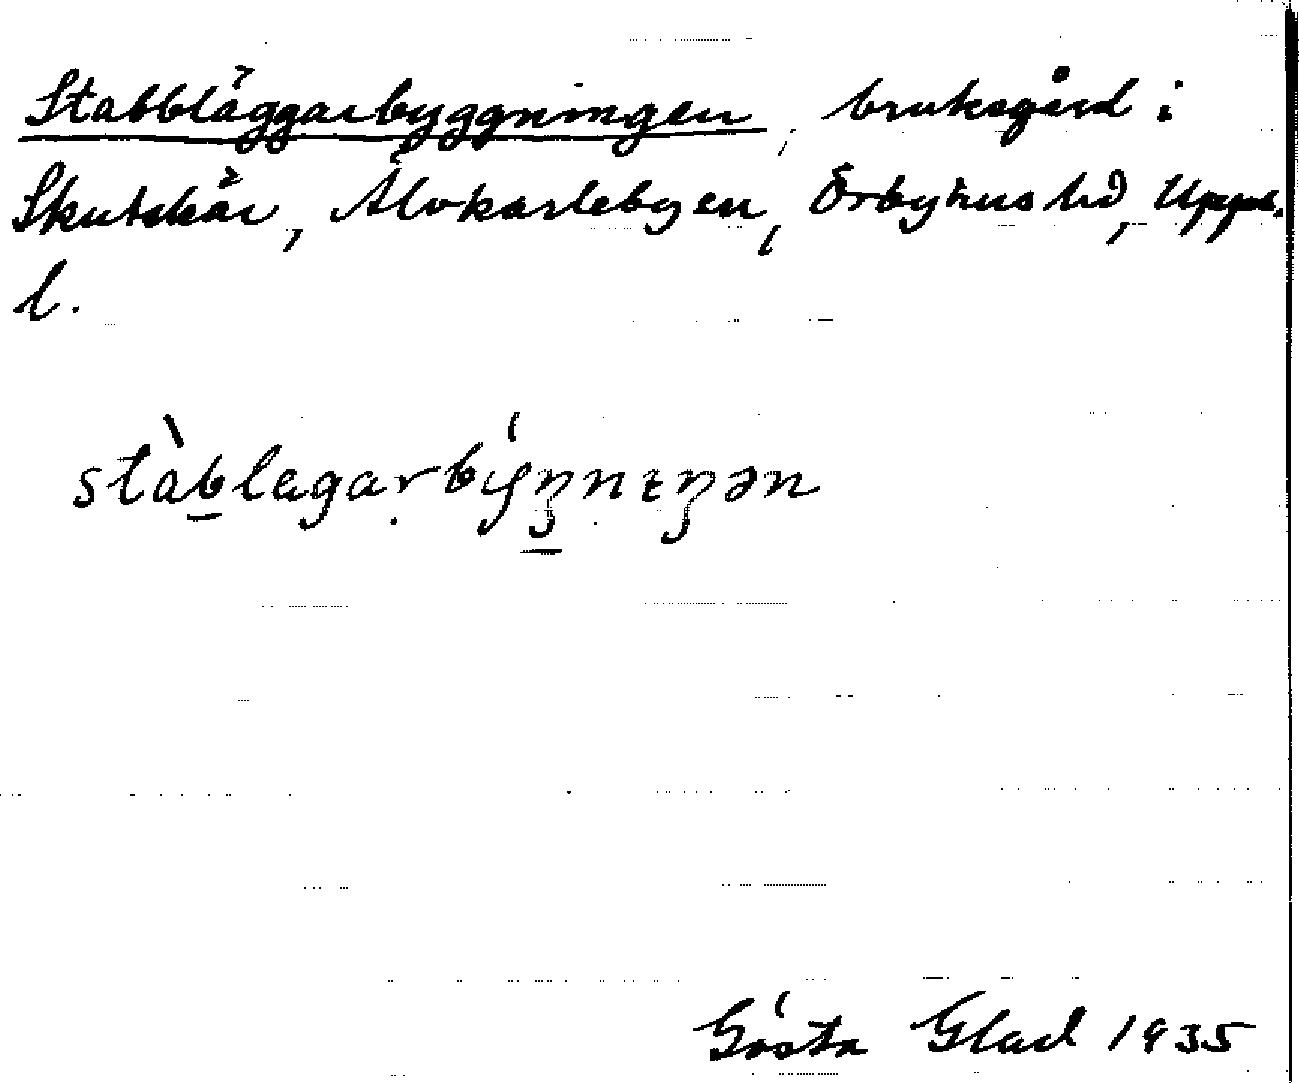 Stabbläggarbyggningen, bruksgård i
Skutskär, Älvkarlebyen, Örbyhus hd, Upps.
l.
stàb̲legarbýŋ̲nɪŋən
Gösta Glad 1935